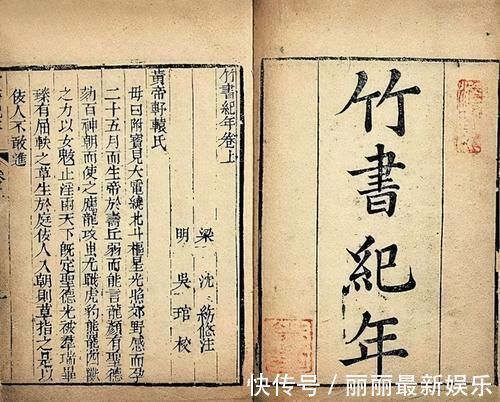 竹書紀年
竹書紀年卷上
梁 沈約附注
明 吳琯校
黃帝軒轅氏
母曰附寶見大電繞北斗樞星光照郊野感而孕
二十五月而生帝於壽丘弱而能言龍顏有聖德
劾百神朝而使之應龍攻蚩尤戰虎豹熊羆四獸
之力以女魃止淫雨天下既定聖德光被羣瑞畢
臻有屈軼之草生於庭佞人入朝則草指之是以
佞人不敢進
快传号 / 丽丽最新娱乐